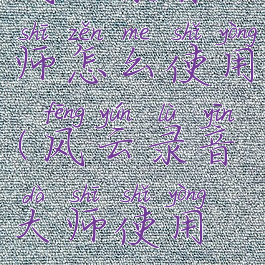 shī zěn me shǐ yòng
师怎么使用
fēng yún lù yīn
(风云录音
dà shī shǐ yòng
大师使用